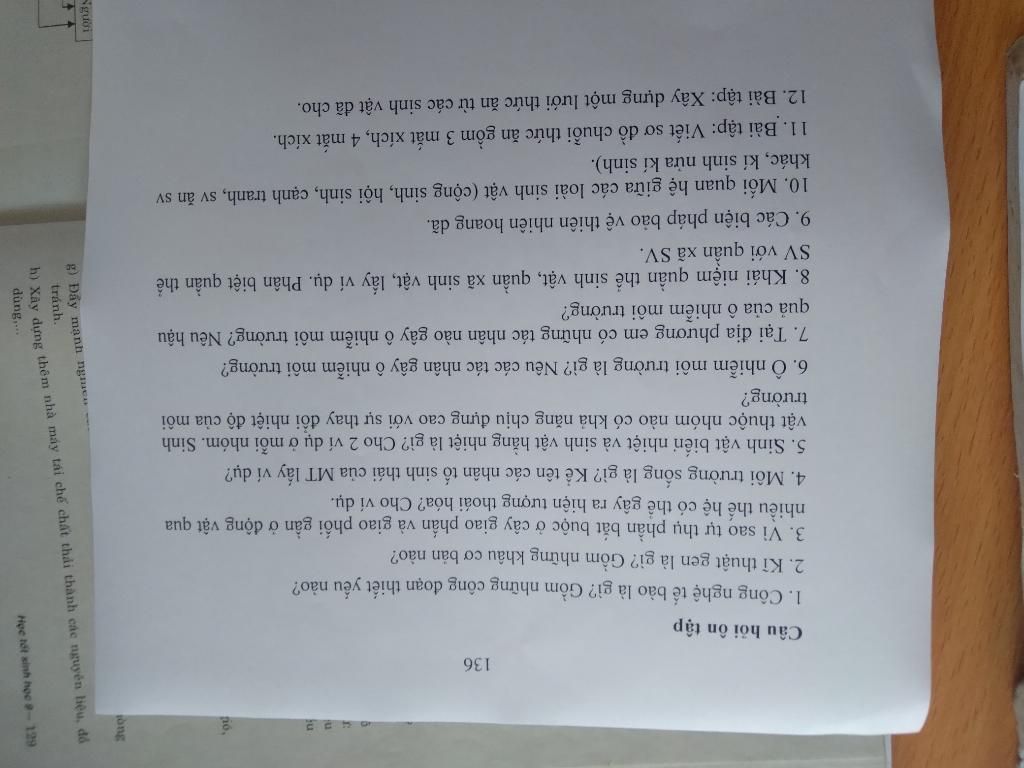 136
Câu hỏi ôn tập
1. Công nghệ tế bào là gì? Gồm những công đoạn thiết yếu nào?
2. Kĩ thuật gen là gì? Gồm những khâu cơ bản nào?
3. Vì sao tự thụ phấn bắt buộc ở cây giao phấn và giao phối gần ở động vật qua
nhiều thế hệ có thể gây ra hiện tượng thoái hóa? Cho ví dụ.
4. Môi trường sống là gì? Kể tên các nhân tố sinh thái của MT lấy ví dụ?
5. Sinh vật biến nhiệt và sinh vật hằng nhiệt là gì? Cho 2 ví dụ ở mỗi nhóm. Sinh
vật thuộc nhóm nào có khả năng chịu đựng cao với sự thay đổi nhiệt độ của môi
trường?
6. Ô nhiễm môi trường là gì? Nêu các tác nhân gây ô nhiễm môi trường?
7. Tại địa phương em có những tác nhân nào gây ô nhiễm môi trường? Nêu hậu
quả của ô nhiễm môi trường?
8. Khái niệm quần thể sinh vật, quần xã sinh vật, lấy ví dụ. Phân biệt quần thể
SV với quần xã SV.
9. Các biện pháp bảo vệ thiên nhiên hoang dã.
10. Mối quan hệ giữa các loài sinh vật (cộng sinh, hội sinh, cạnh tranh, sv ăn sv
khác, kí sinh nửa kí sinh).
11. Bài tập: Viết sơ đồ chuỗi thức ăn gồm 3 mắt xích, 4 mắt xích.
12. Bài tập: Xây dựng một lưới thức ăn từ các sinh vật đã cho.
g) Đẩy mạnh
tránh.
h) Xây dựng thêm nhà máy tái chế chất thải thành các nguyên liệu, đồ
dùng,...
Học tốt sinh học 9 – 129
Người